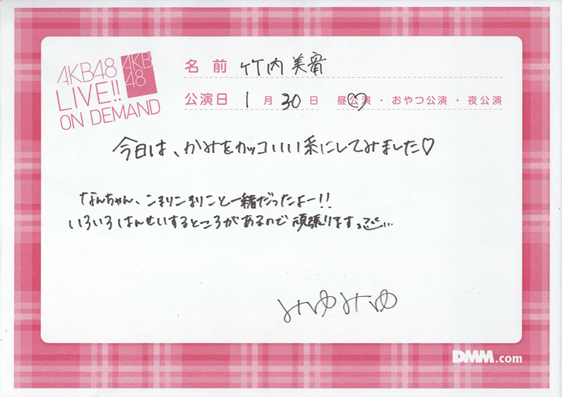 AKB48
LIVE!!
ON DEMAND
AKB
48
名前 竹内美宥
公演日 1月30日 昼公演・おやつ公演・夜公演
今日は、かみをカッコいい系にしてみました♡
なんちゃん、こまりこまりこと一緒だったよー!!
いろいろはんせいするところがあるので頑張ります。
みゆみゆ
DMM.com